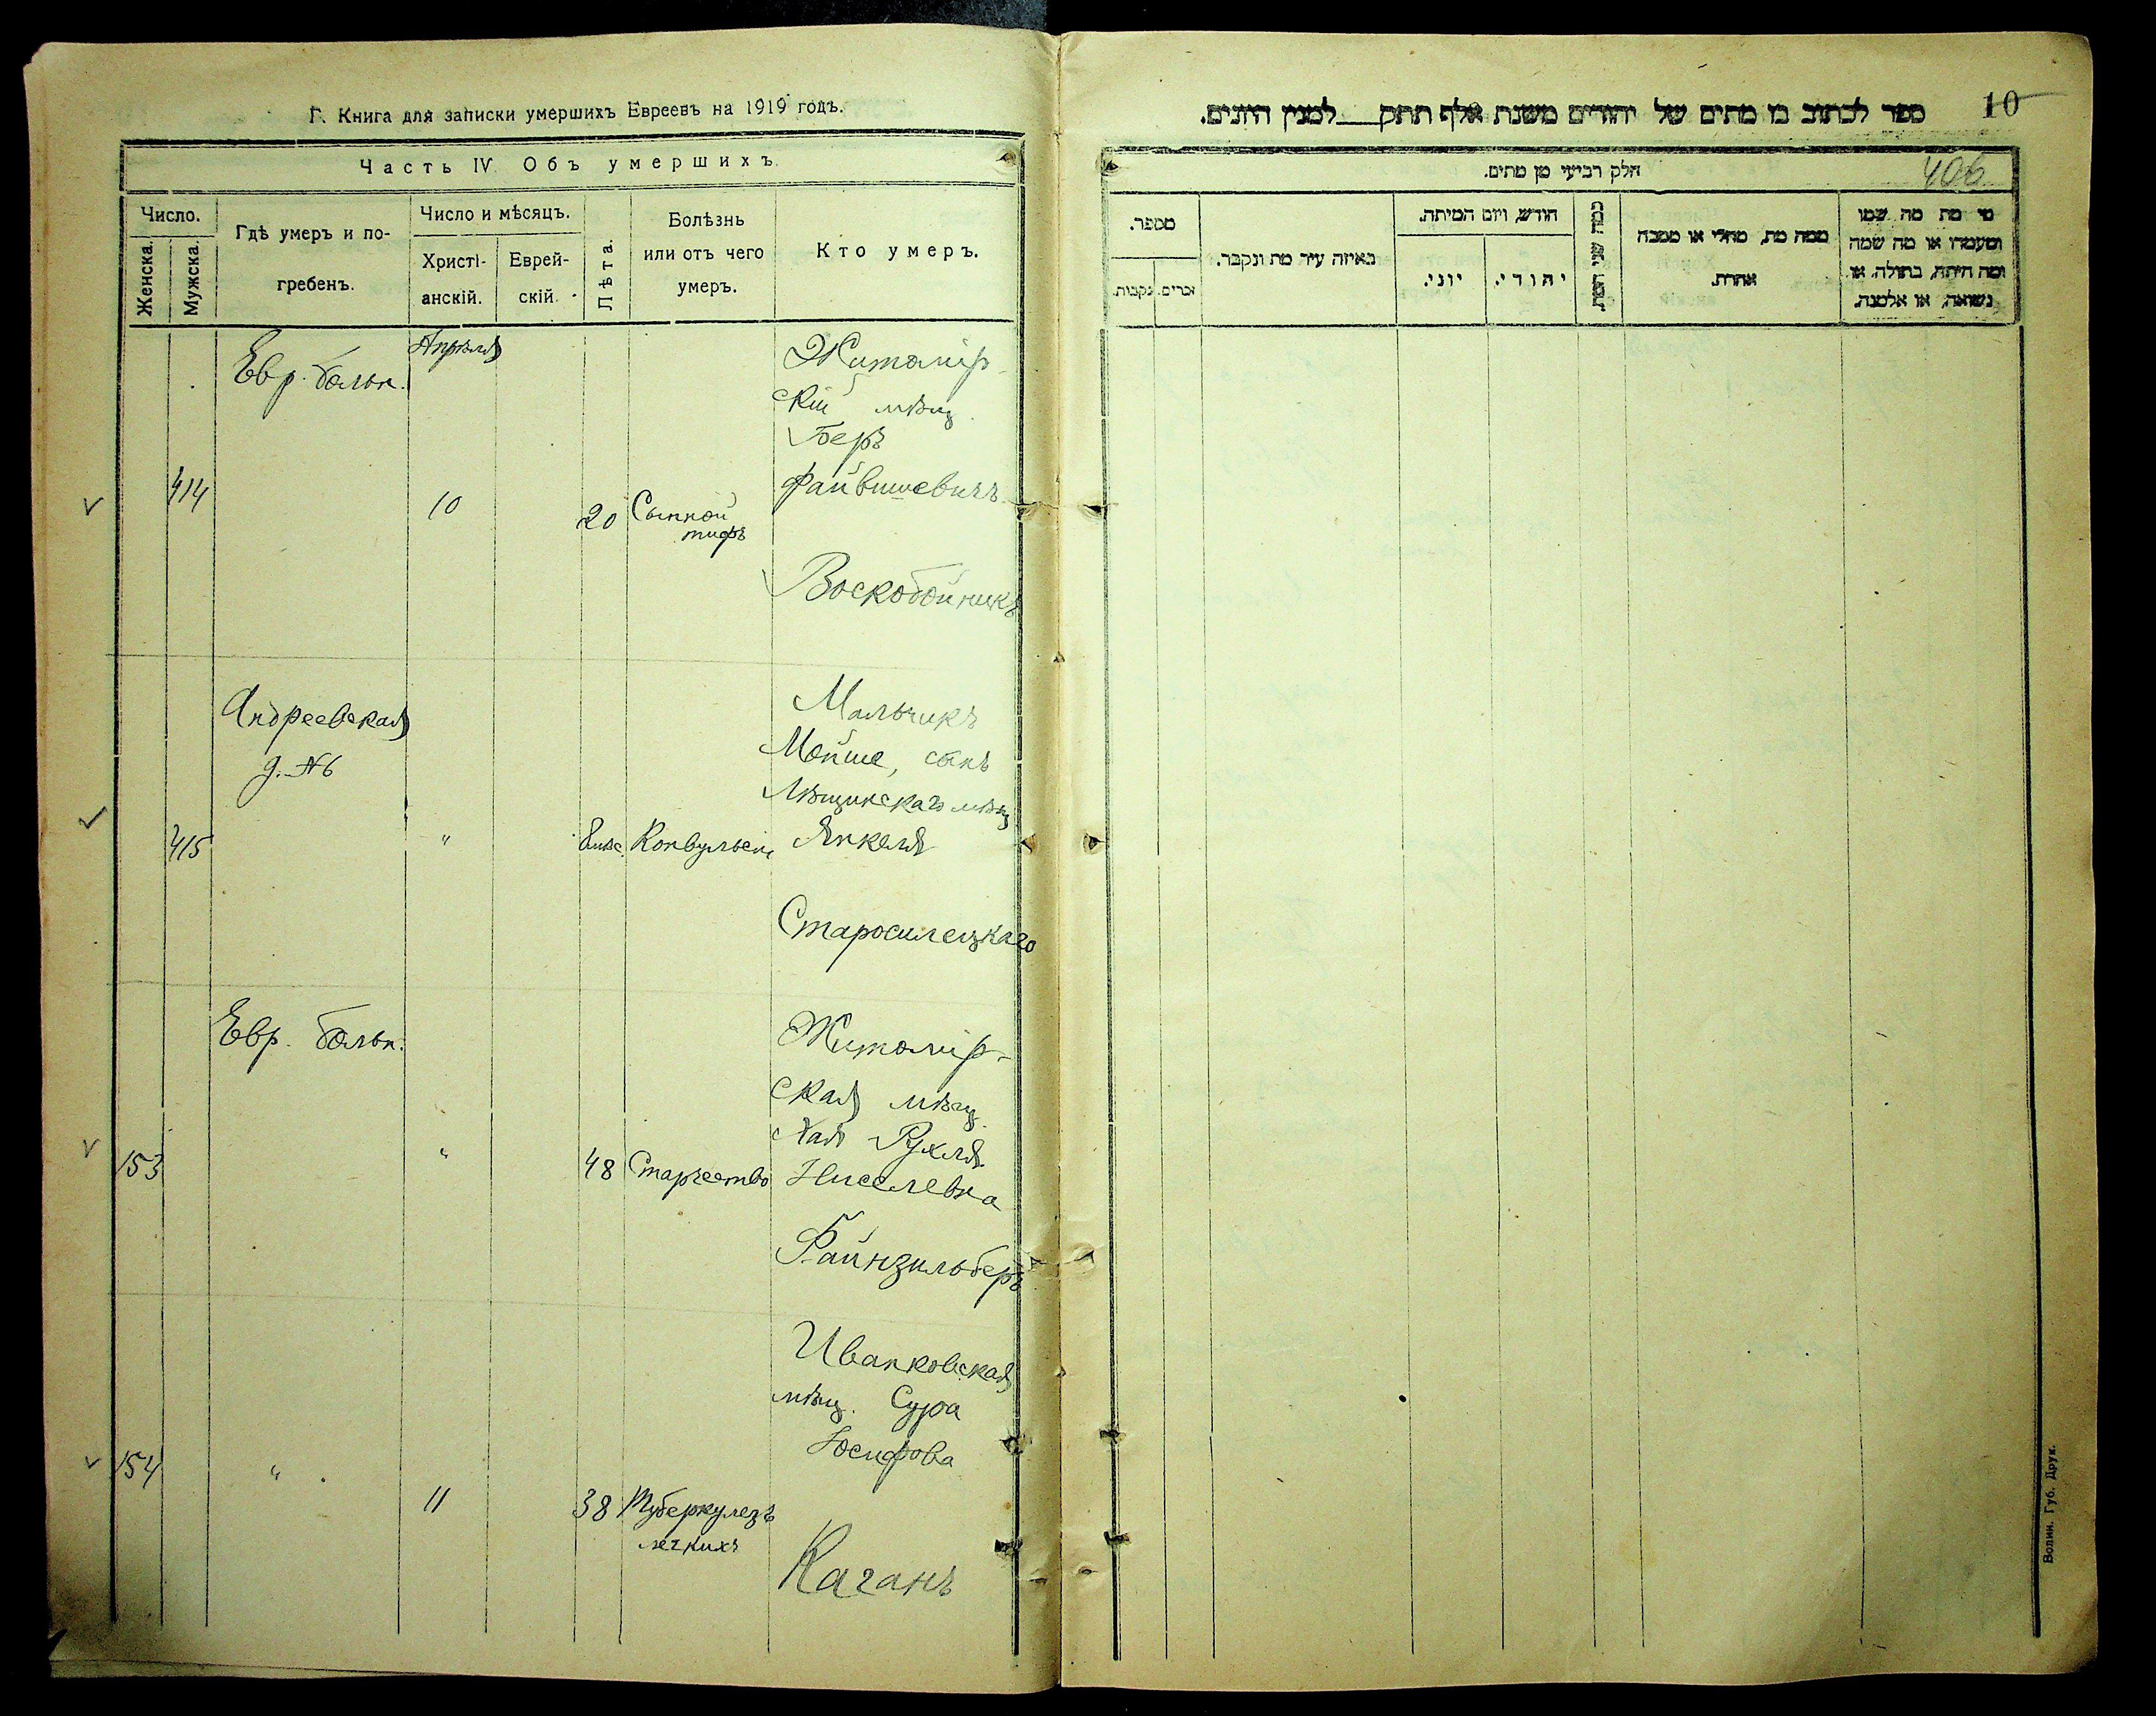 Г. Книга для записки умершихъ Евреевъ на 1919 годъ.
Часть IV. Объ умершихъ.
Число.
Женска.
Мужска.
Гдѣ умеръ и по-
гребенъ.
Число и мѣсяцъ.
Христі-
анскій.
Еврей-
скій.
Лѣта.
Болѣзнь
или отъ чего
умеръ.
Кто умеръ.
Евр. больн.
Апрѣля
Житомір-
скій мѣщ.
Беръ
414
10
20
Сыпной
тифъ
Файвишевичъ
Воскобойникъ
Андреевская
д. №6
Мальчикъ
Мойше, сынъ
мѣщ
415
"
8 мѣс.
Конвульсіи
Янкеля
Старосилецкаго
Евр. больн.
Житомір-
ская мѣщ.
Хая Рухля
153
"
48
Старчество
Ниселевна
Файнзильберъ
Иванковская
мѣщ. Сура
Юсифова
154
"
11
38
Туберкулезъ
легкихъ
Каганъ
10
ספר לכתוב בו מתים של יהודים משנת אלף תתק___למנין היונים.
406
חלק רביעי מן מתים.
מי מת מה שמו
ומעמדו או מה שמה
ומה היתה, בתולה, או
נשואה, או אלמנה.
ממה מת, מחלי או מסבה
אחרת.
כמה שני המת.
חודש, ויום המיתה.
יהודי.
יוני.
באיזה עיר מת ונקבר.
מספר.
זכרים.
נקבות.
Волин. Губ. Друк.